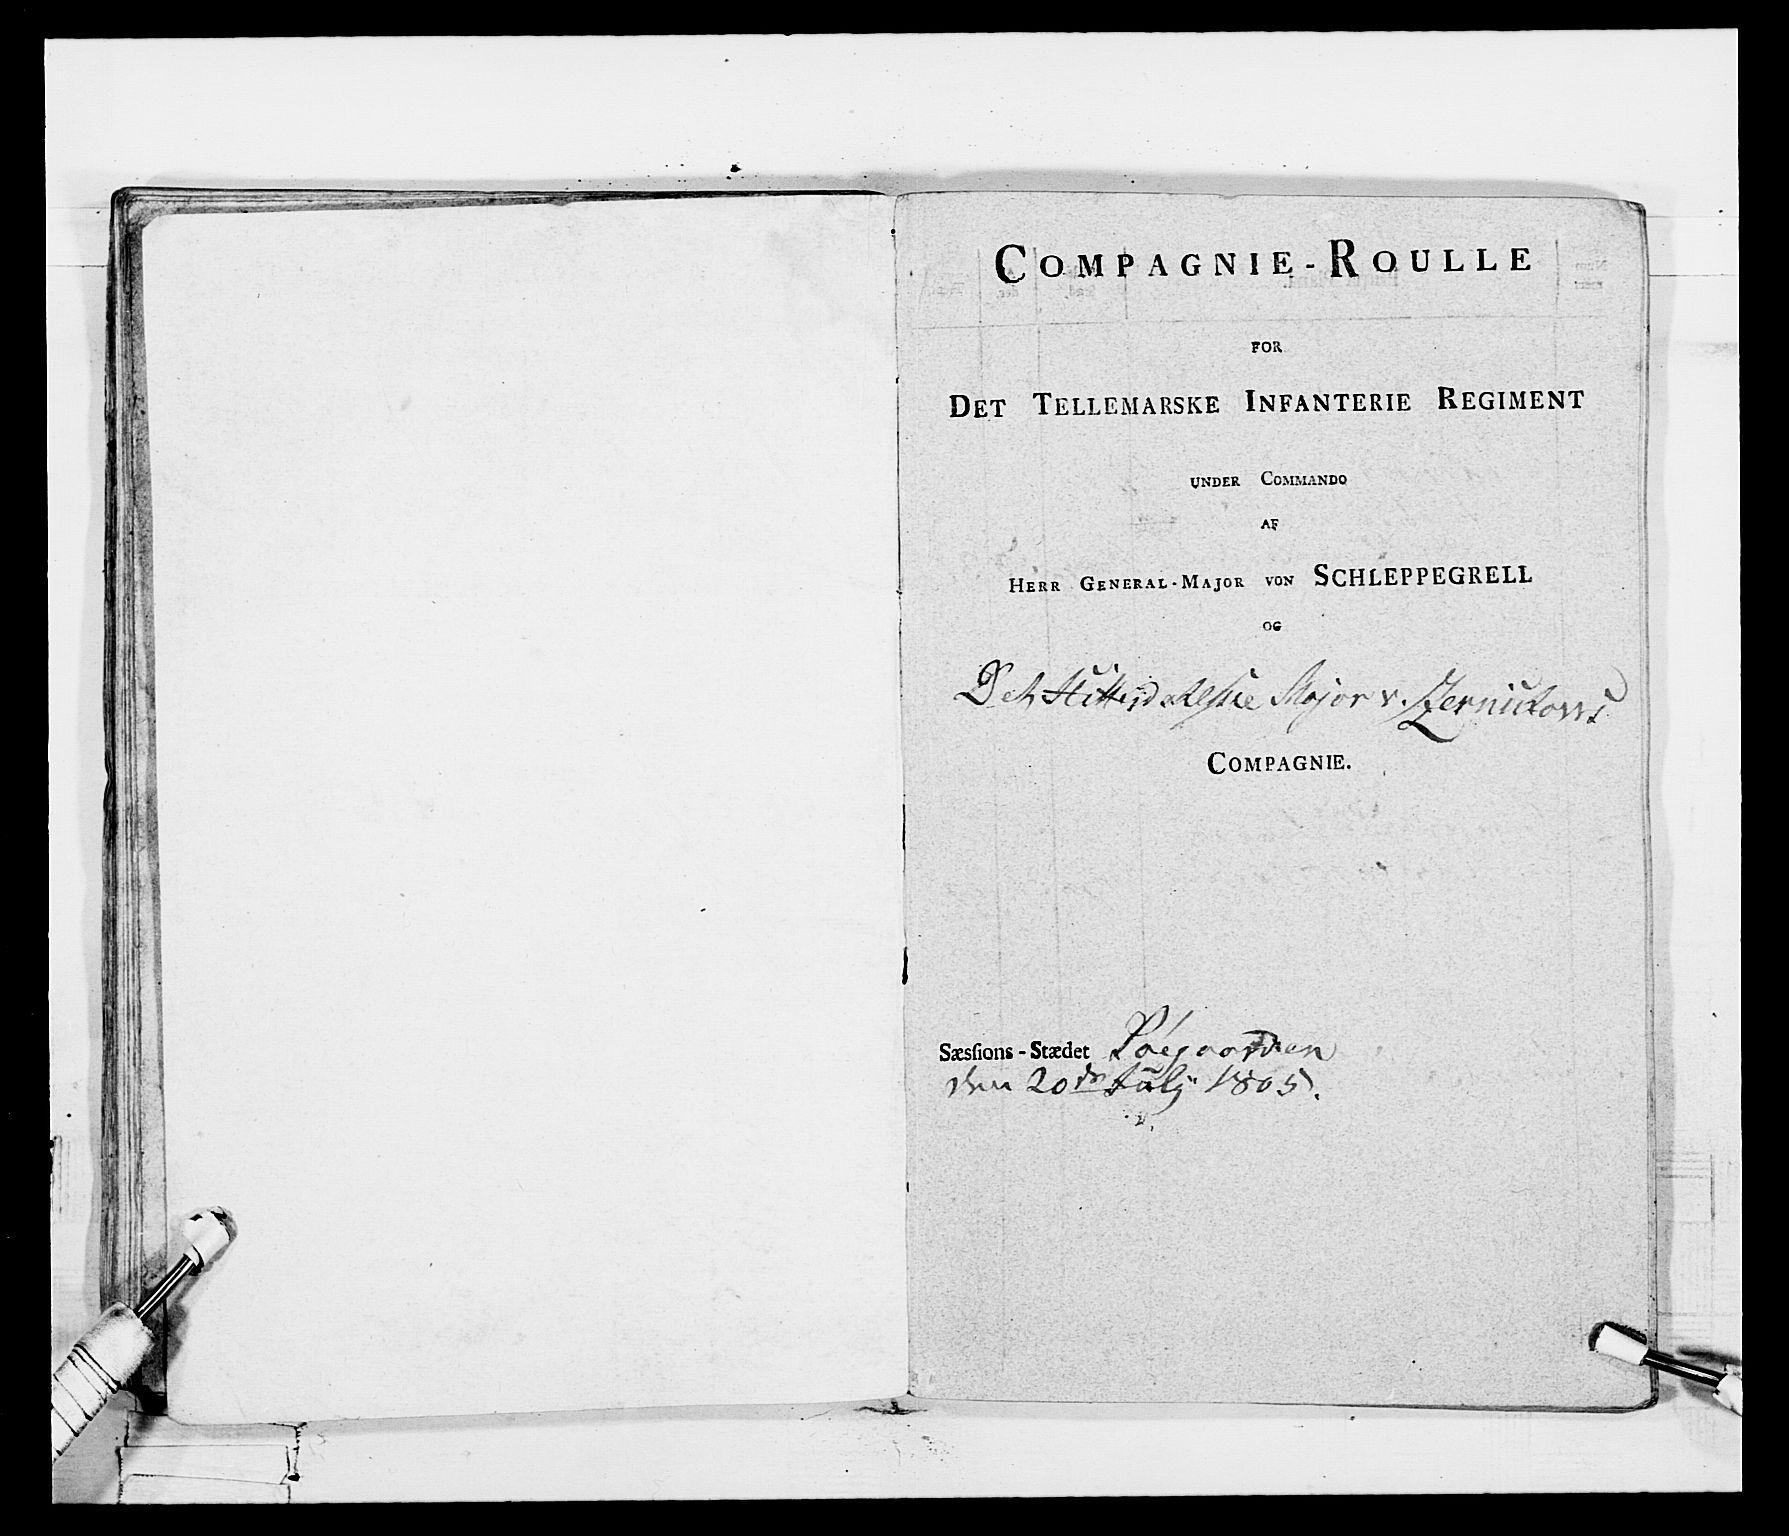 COMPAGNIE-ROULLE
FOR
DET TELLEMARSKE INFANTERIE REGIMENT
UNDER COMMANDO
AF
HERR GENERAL-MAJOR VON SCHLEPPEGRELL
OG
Det Hitterdalske Major v. Zernickows
COMPAGNIE.
Sæsſions-Stædet Præˈgaarden
den 20de July 1805.